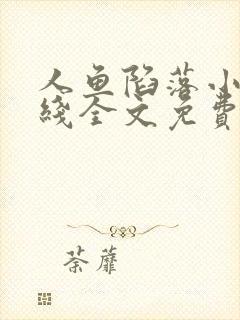 人鱼陷落小
线全文免费
荼蘼